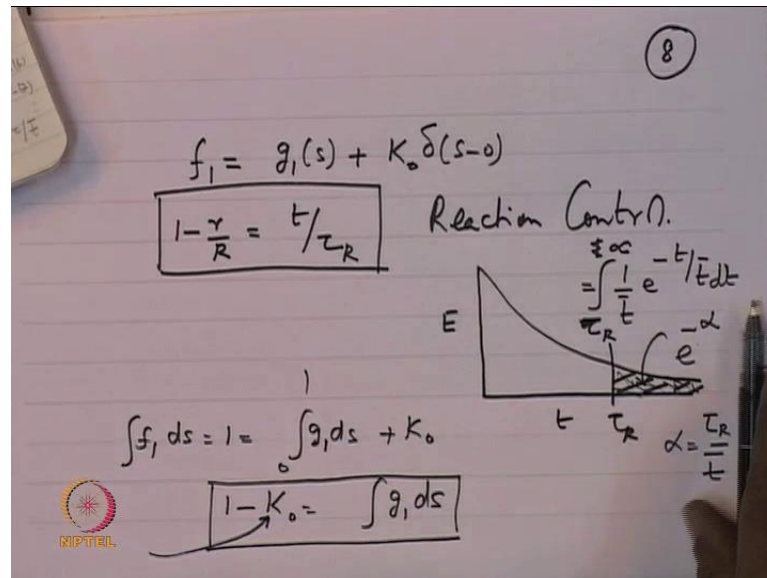 8
f₁ = g₁(s) + K₀ δ(s-0)
1 - r/R = t/τ_R
Reaction Control.
= ∫_{τ_R}^{∞} 1/t̄ e^{-t/t̄} dt
E
e^{-α}
t
τ_R
α = τ_R/t̄
∫f₁ ds = 1 = ∫₀¹ g₁ds + K₀
1 - K₀ = ∫g₁ds
NPTEL
τ/t̄